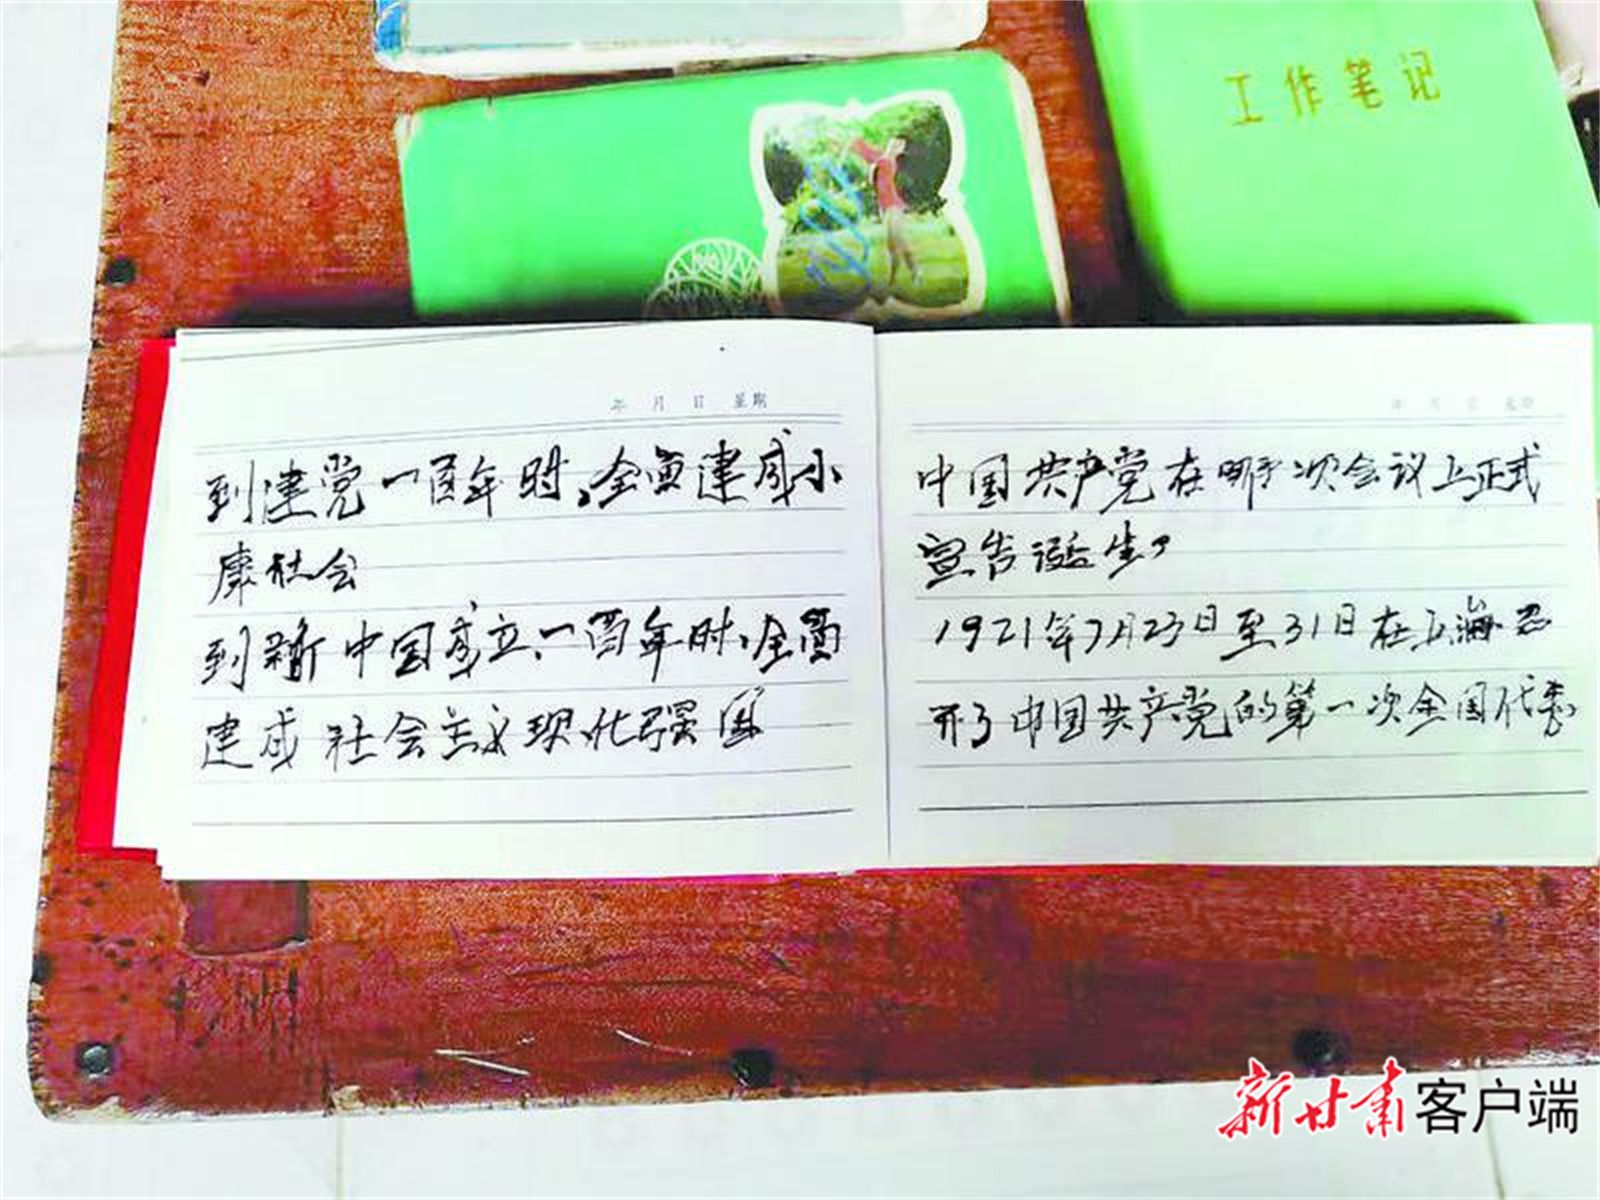 工作笔记
年 月 日 星期
到建党一百年时,全面建成小
康社会
到新中国成立一百年时,全面
建成社会主义现代化强国
年 月 日 星期
中国共产党在哪次会议上正式
宣告诞生?
1921年7月23日至31日在上海召
开了中国共产党的第一次全国代表
新甘肃客户端